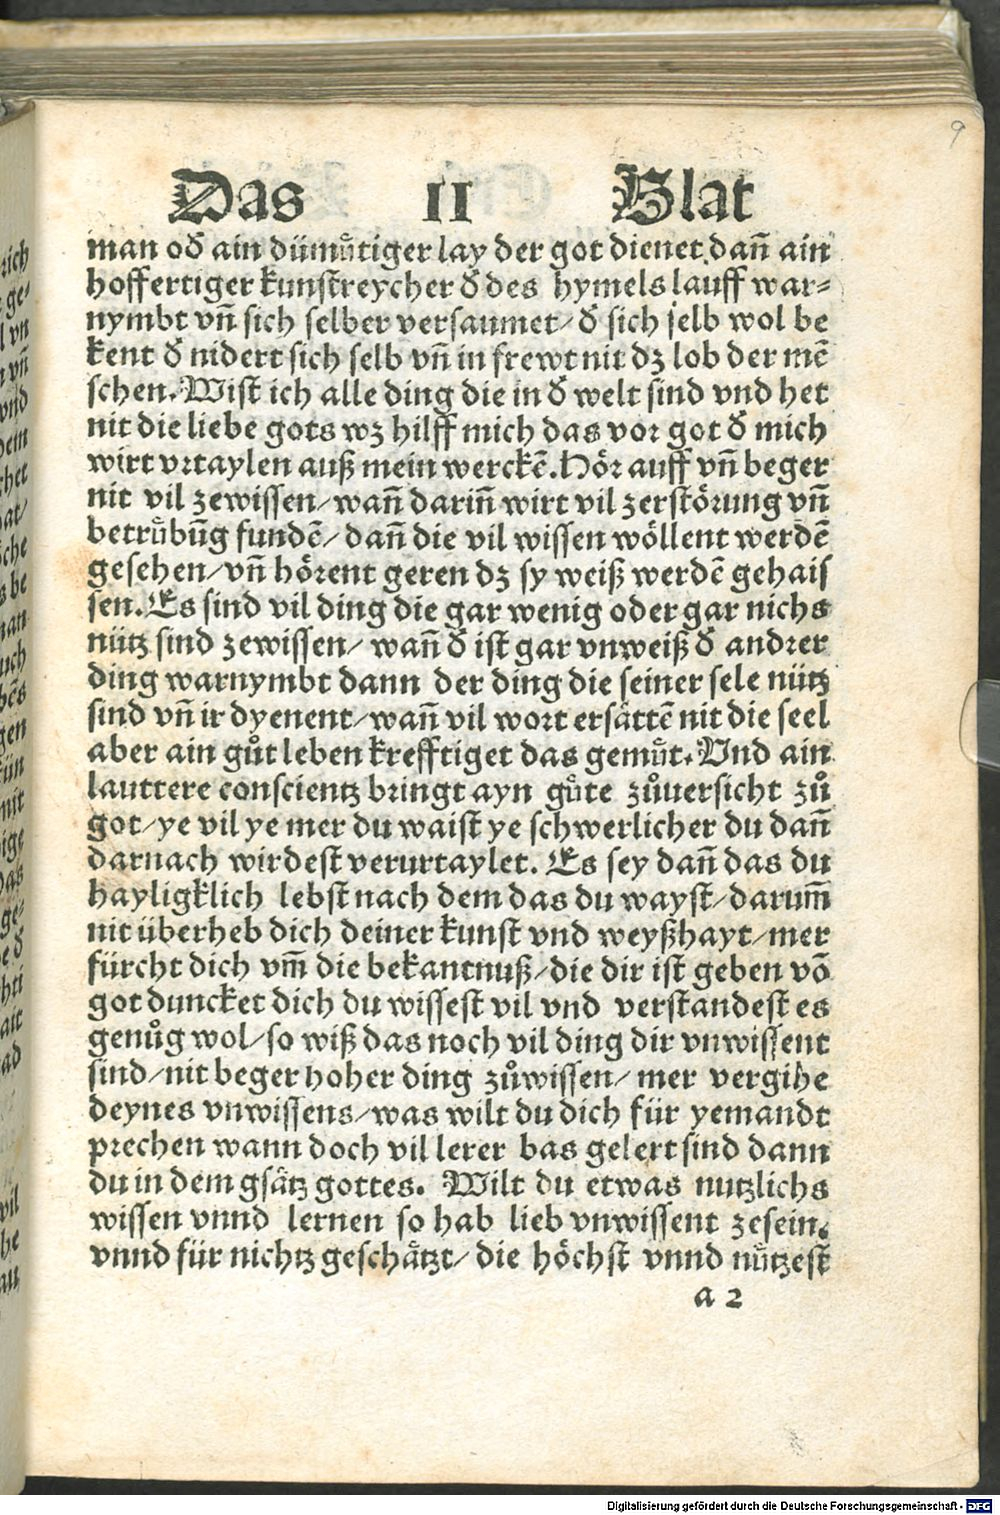 9
Das II Blat
man od̕ ain dümuͤtiger lay der got dienet dañ ain
hoffertiger kunstreycher d̕ des hymels lauff war⸗
nymbt vñ sich selber versaumet/ d̕ sich selb wol be
kent d̕ nidert sich selb vñ in frewt nit dz lob der mē
schen. Wist ich alle ding die in d̕ welt sind vnd het
nit die liebe gots wz hilff mich das vor got d̕ mich
wirt vrtaylen auß mein werckē. Hör auff vñ beger
nit vil zewissen/ wañ dariñ wirt vil zerstörung vñ
betruͤbūg fundē/ dañ die vil wissen wöllent werdē
gesehen/ vñ hörent geren dz sy weiß werdē gehais
sen. Es sind vil ding die gar wenig oder gar nichs
nütz sind zewissen/ wañ d̕ ist gar vnweiß d̕ andrer
ding warnymbt dann der ding die seiner sele nütz
sind vñ ir dyenent/ wañ vil wort ersättē nit die seel
aber ain guͦt leben krefftiget das gemuͤt. Vnd ain
lauttere conscientz bringt ayn guͤte zuͦuersicht zuͦ
got/ ye vil ye mer du waist ye schwerlicher du dañ
darnach wirdest verurtaylet. Es sey dañ das du
hayligklich lebst nach dem das du wayst/ darum̄
nit überheb dich deiner kunst vnd weyßhayt/ mer
fürcht dich vm̄ die bekantnuß/ die dir ist geben vō
got duncket dich du wissest vil vnd verstandest es
genuͦg wol/ so wiß das noch vil ding dir vnwissent
sind/ nit beger hoher ding zuͦwissen/ mer vergihe
deynes vnwissens/ was wilt du dich für yemandt
prechen wann doch vil lerer bas gelert sind dann
du in dem gsätz gottes. Wilt du etwas nutzlichs
wissen vnnd lernen so hab lieb vnwissent zesein.
vnnd für nichtz geschätzt/ die höchst vnnd nuͤtzest
a 2
Digitalisierung gefördert durch die Deutsche Forschungsgemeinschaft - DFG